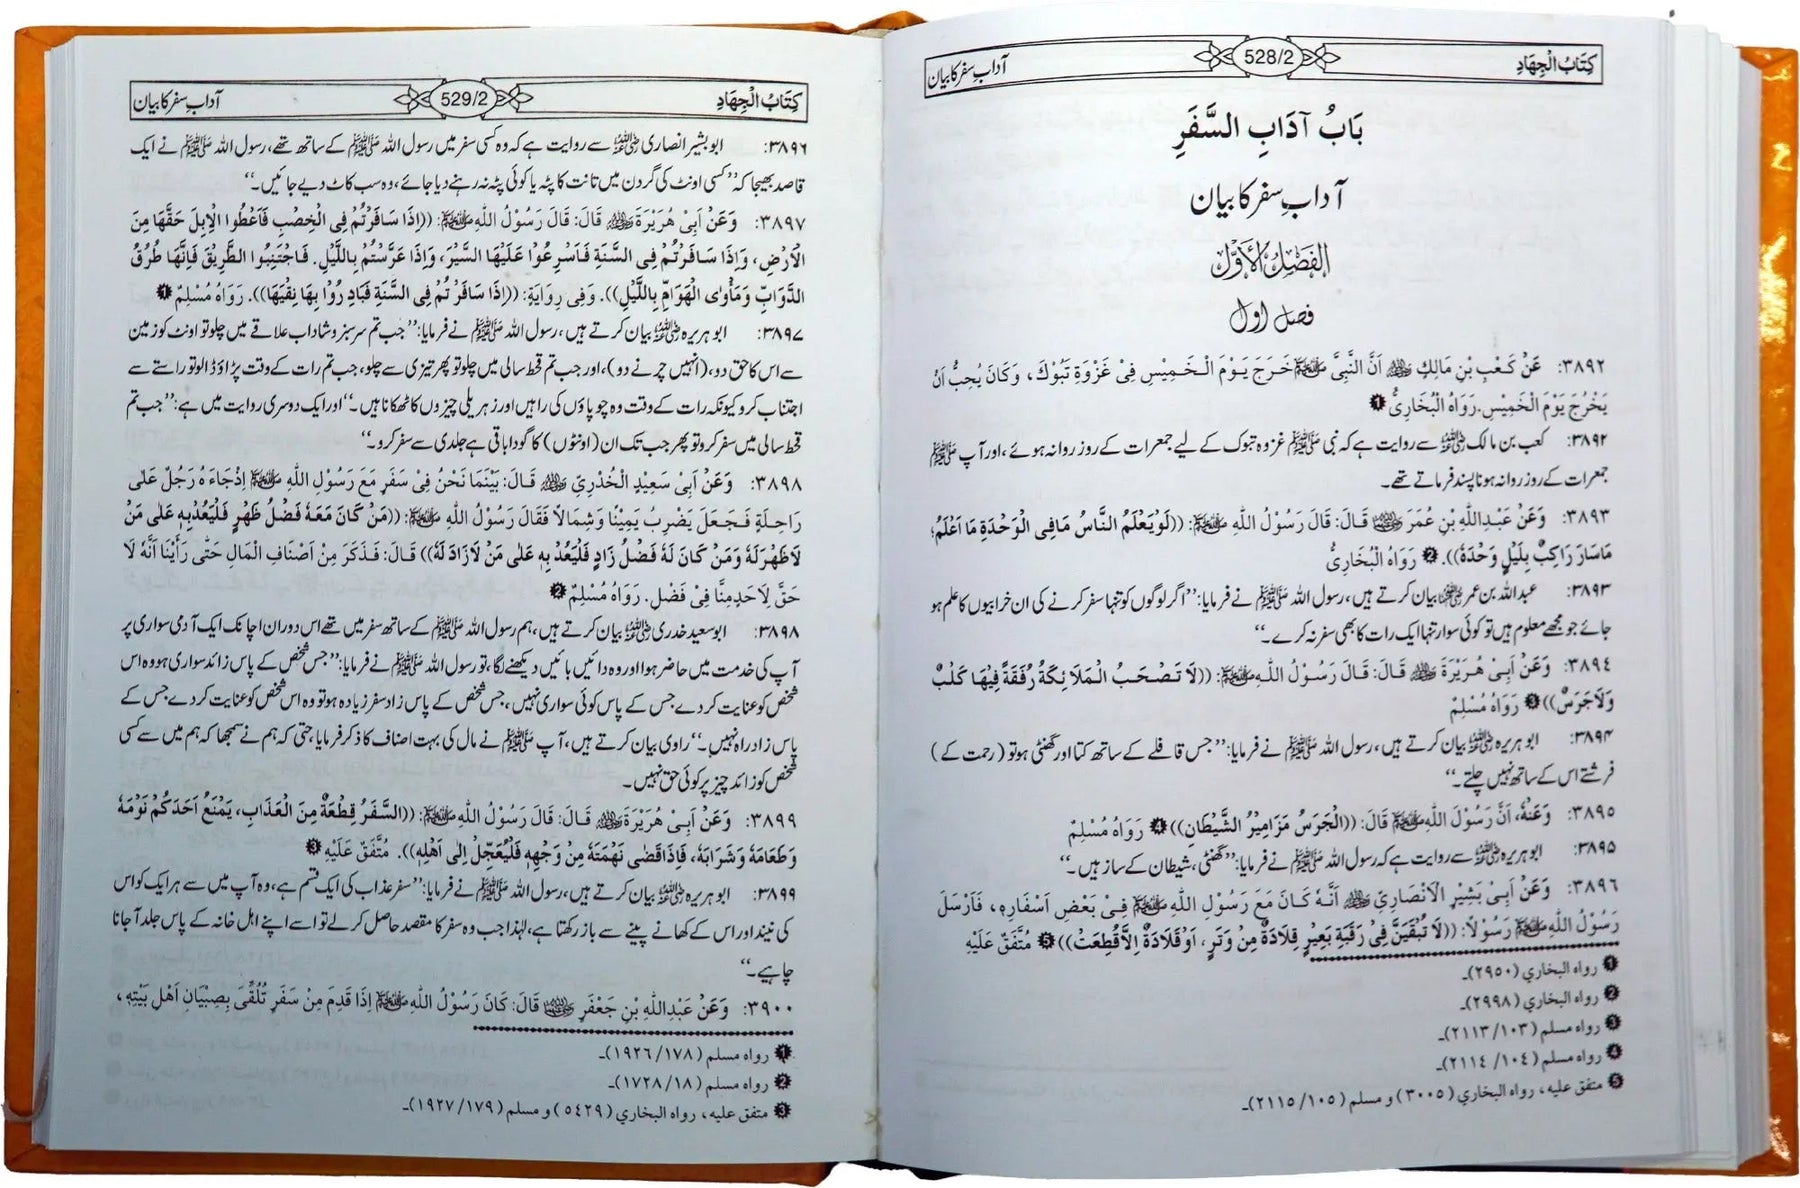 كِتَابُ الْجِهَادِ 528/2 آدابِ سفر کا بیان
بَابُ آدَابِ السَّفَرِ
آدابِ سفر کا بیان
الفَصْلُ الأَوَّلُ
فصل اول
٣٨٩٢: عَنْ كَعْبِ بْنِ مَالِكٍ ﷺ أَنَّ النَّبِيَّ ﷺ خَرَجَ يَوْمَ الْخَمِيْسِ فِيْ غَزْوَةِ تَبُوْكَ، وَكَانَ يُحِبُّ اَنْ
يَخْرُجَ يَوْمَ الْخَمِيْسِ. رَوَاهُ الْبُخَارِيُّ ❶
۳۸۹۲: کعب بن مالک رضی اللہ عنہ سے روایت ہے کہ نبی ﷺ غزوہ تبوک کے لیے جمعرات کے روز روانہ ہوئے، اور آپ ﷺ
جمعرات کے روز روانہ ہونا پسند فرماتے تھے۔
٣٨٩٣: وَعَنْ عَبْدِاللّٰهِ بْنِ عُمَرَ قَالَ: قَالَ رَسُوْلُ اللّٰهِ ﷺ: ((لَوْ يَعْلَمُ النَّاسُ مَا فِي الْوَحْدَةِ مَا اَعْلَمُ؛
مَاسَارَ رَاكِبٌ بِلَيْلٍ وَحْدَهٗ)). ❷ رَوَاهُ الْبُخَارِيُّ
۳۸۹۳: عبداللہ بن عمر رضی اللہ عنہما بیان کرتے ہیں، رسول اللہ ﷺ نے فرمایا: ’’اگر لوگوں کو تنہا سفر کرنے کی ان خرابیوں کا علم ہو
جائے جو مجھے معلوم ہیں تو کوئی سوار تنہا ایک رات کا بھی سفر نہ کرے۔‘‘
٣٨٩٤: وَعَنْ أَبِيْ هُرَيْرَةَ رضی اللہ عنہ قَالَ: قَالَ رَسُوْلُ اللّٰهِ ﷺ: ((لَا تَصْحَبُ الْمَلَائِكَةُ رُفْقَةً فِيْهَا كَلْبٌ
وَلَا جَرَسٌ)) ❸ رَوَاهُ مُسْلِمٌ
۳۸۹۴: ابو ہریرہ رضی اللہ عنہ بیان کرتے ہیں، رسول اللہ ﷺ نے فرمایا: ’’جس قافلے کے ساتھ کتا اور گھنٹی ہو تو (رحمت کے)
فرشتے اس کے ساتھ نہیں چلتے۔‘‘
٣٨٩٥: وَعَنْهُ، اَنَّ رَسُوْلَ اللّٰهِ ﷺ قَالَ: ((الْجَرَسُ مَزَامِيْرُ الشَّيْطَانِ)) ❹ رَوَاهُ مُسْلِمٌ
۳۸۹۵: ابو ہریرہ رضی اللہ عنہ سے روایت ہے کہ رسول اللہ ﷺ نے فرمایا: ’’گھنٹی، شیطان کے ساز ہیں۔‘‘
٣٨٩٦: وَعَنْ أَبِيْ بَشِيْرِ الْاَنْصَارِيِّ رضی اللہ عنہ أَنَّهُ كَانَ مَعَ رَسُوْلِ اللّٰهِ ﷺ فِيْ بَعْضِ اَسْفَارِهٖ، فَاَرْسَلَ
رَسُوْلُ اللّٰهِ ﷺ رَسُوْلًا: ((لَا تُبْقَيَنَّ فِيْ رَقَبَةِ بَعِيْرٍ قِلَادَةٌ مِنْ وَتَرٍ، اَوْ قِلَادَةٌ اِلَّا قُطِعَتْ)) ❺ مُتَّفَقٌ عَلَيْهِ
❶ رواه البخاري (٢٩٥٠)۔
❷ رواه البخاري (٢٩٩٨)۔
❸ رواه مسلم (١٠٣/ ٢١١٣)۔
❹ رواه مسلم (١٠٤/ ٢١١٤)۔
❺ متفق عليه، رواه البخاري (٣٠٠٥) و مسلم (١٠٥/ ٢١١٥)۔
كِتَابُ الْجِهَادِ 529/2 آدابِ سفر کا بیان
۳۸۹۶: ابو بشیر انصاری رضی اللہ عنہ سے روایت ہے کہ وہ کسی سفر میں رسول اللہ ﷺ کے ساتھ تھے، رسول اللہ ﷺ نے ایک
قاصد بھیجا کہ ’’کسی اونٹ کی گردن میں تانت کا پٹہ یا کوئی پٹہ نہ رہنے دیا جائے، وہ سب کاٹ دیے جائیں۔‘‘
٣٨٩٧: وَعَنْ اَبِيْ هُرَيْرَةَ رضی اللہ عنہ قَالَ: قَالَ رَسُوْلُ اللّٰهِ ﷺ: ((إِذَا سَافَرْتُمْ فِي الْخِصْبِ فَاَعْطُوا الْاِبِلَ حَقَّهَا مِنَ
الْاَرْضِ، وَإِذَا سَافَرْتُمْ فِي السَّنَةِ فَاَسْرِعُوْا عَلَيْهَا السَّيْرَ، وَإِذَا عَرَّسْتُمْ بِاللَّيْلِ. فَاجْتَنِبُوا الطَّرِيْقَ فَاِنَّهَا طُرُقُ
الدَّوَابِّ وَمَأْوَى الْهَوَامِّ بِاللَّيْلِ)). وَفِيْ رِوَايَةٍ: ((إِذَا سَافَرْتُمْ فِي السَّنَةِ فَبَادِرُوْا بِهَا نِقْيَهَا)). رَوَاهُ مُسْلِمٌ ❶
۳۸۹۷: ابو ہریرہ رضی اللہ عنہ بیان کرتے ہیں، رسول اللہ ﷺ نے فرمایا: ’’جب تم سرسبز و شاداب علاقے میں چلو تو اونٹ کو زمین
سے اس کا حق دو، (انہیں چرنے دو)، اور جب تم قحط سالی میں چلو تو پھر تیزی سے چلو، جب تم رات کے وقت پڑاؤ ڈالو تو راستے سے
اجتناب کرو کیونکہ رات کے وقت وہ چوپاؤں کی راہیں اور زہریلی چیزوں کا ٹھکانا ہیں۔‘‘ اور ایک دوسری روایت میں ہے: ’’جب تم
قحط سالی میں سفر کرو تو پھر جب تک ان (اونٹوں) کا گودا باقی ہے جلدی سے سفر کرو۔‘‘
٣٨٩٨: وَعَنْ اَبِيْ سَعِيْدِ الْخُدْرِيِّ رضی اللہ عنہ قَالَ: بَيْنَمَا نَحْنُ فِيْ سَفَرٍ مَعَ رَسُوْلِ اللّٰهِ ﷺ اِذْجَاءَهُ رَجُلٌ عَلٰى
رَاحِلَةٍ فَجَعَلَ يَضْرِبُ يَمِيْنًا وَشِمَالًا فَقَالَ رَسُوْلُ اللّٰهِ ﷺ: ((مَنْ كَانَ مَعَهٗ فَضْلُ ظَهْرٍ فَلْيَعُدْبِهٖ عَلٰى مَنْ
لَا ظَهْرَ لَهٗ وَمَنْ كَانَ لَهٗ فَضْلُ زَادٍ فَلْيَعُدْ بِهٖ عَلٰى مَنْ لَا زَادَ لَهٗ)) قَالَ: فَذَكَرَ مِنْ اَصْنَافِ الْمَالِ حَتّٰى رَأَيْنَا اَنَّهٗ لَا
حَقَّ لِاَحَدٍ مِنَّا فِيْ فَضْلٍ. رَوَاهُ مُسْلِمٌ ❷
۳۸۹۸: ابو سعید خدری رضی اللہ عنہ بیان کرتے ہیں، ہم رسول اللہ ﷺ کے ساتھ سفر میں تھے اس دوران اچانک ایک آدمی سواری پر
آپ کی خدمت میں حاضر ہوا اور وہ دائیں بائیں دیکھنے لگا، تو رسول اللہ ﷺ نے فرمایا: ’’جس شخص کے پاس زائد سواری ہو وہ اس
شخص کو عنایت کر دے جس کے پاس کوئی سواری نہیں، جس شخص کے پاس زاد سفر زیادہ ہو تو وہ اس شخص کو عنایت کر دے جس کے
پاس زاد راہ نہیں۔‘‘ راوی بیان کرتے ہیں، آپ ﷺ نے مال کی بہت اصناف کا ذکر فرمایا، حتی کہ ہم نے سمجھا کہ ہم میں سے کسی
شخص کو زائد چیز پر کوئی حق نہیں۔
٣٨٩٩: وَعَنْ اَبِيْ هُرَيْرَةَ رضی اللہ عنہ قَالَ: قَالَ رَسُوْلُ اللّٰهِ ﷺ: ((السَّفَرُ قِطْعَةٌ مِنَ الْعَذَابِ، يَمْنَعُ اَحَدَكُمْ نَوْمَهٗ
وَطَعَامَهٗ وَشَرَابَهٗ، فَاِذَا قَضٰى نَهْمَتَهٗ مِنْ وَجْهِهٖ فَلْيُعَجِّلْ اِلٰى اَهْلِهٖ)). مُتَّفَقٌ عَلَيْهِ ❸
۳۸۹۹: ابو ہریرہ رضی اللہ عنہ بیان کرتے ہیں، رسول اللہ ﷺ نے فرمایا: ’’سفر عذاب کی ایک قسم ہے، وہ آپ میں سے ہر ایک کو اس
کی نیند اور اس کے کھانے پینے سے باز رکھتا ہے، لہٰذا جب وہ سفر کا مقصد حاصل کر لے تو اسے اپنے اہل خانہ کے پاس جلد آ جانا
چاہیے۔‘‘
٣٩٠٠: وَعَنْ عَبْدِاللّٰهِ بْنِ جَعْفَرٍ رضی اللہ عنہ قَالَ: كَانَ رَسُوْلُ اللّٰهِ ﷺ اِذَا قَدِمَ مِنْ سَفَرٍ تُلُقِّيَ بِصِبْيَانِ اَهْلِ بَيْتِهٖ،
❶ رواه مسلم (١٧٨/ ١٩٢٦)۔
❷ رواه مسلم (١٨/ ١٧٢٨)۔
❸ متفق عليه، رواه البخاري (٥٤٢٩) و مسلم (١٧٩/ ١٩٢٧)۔